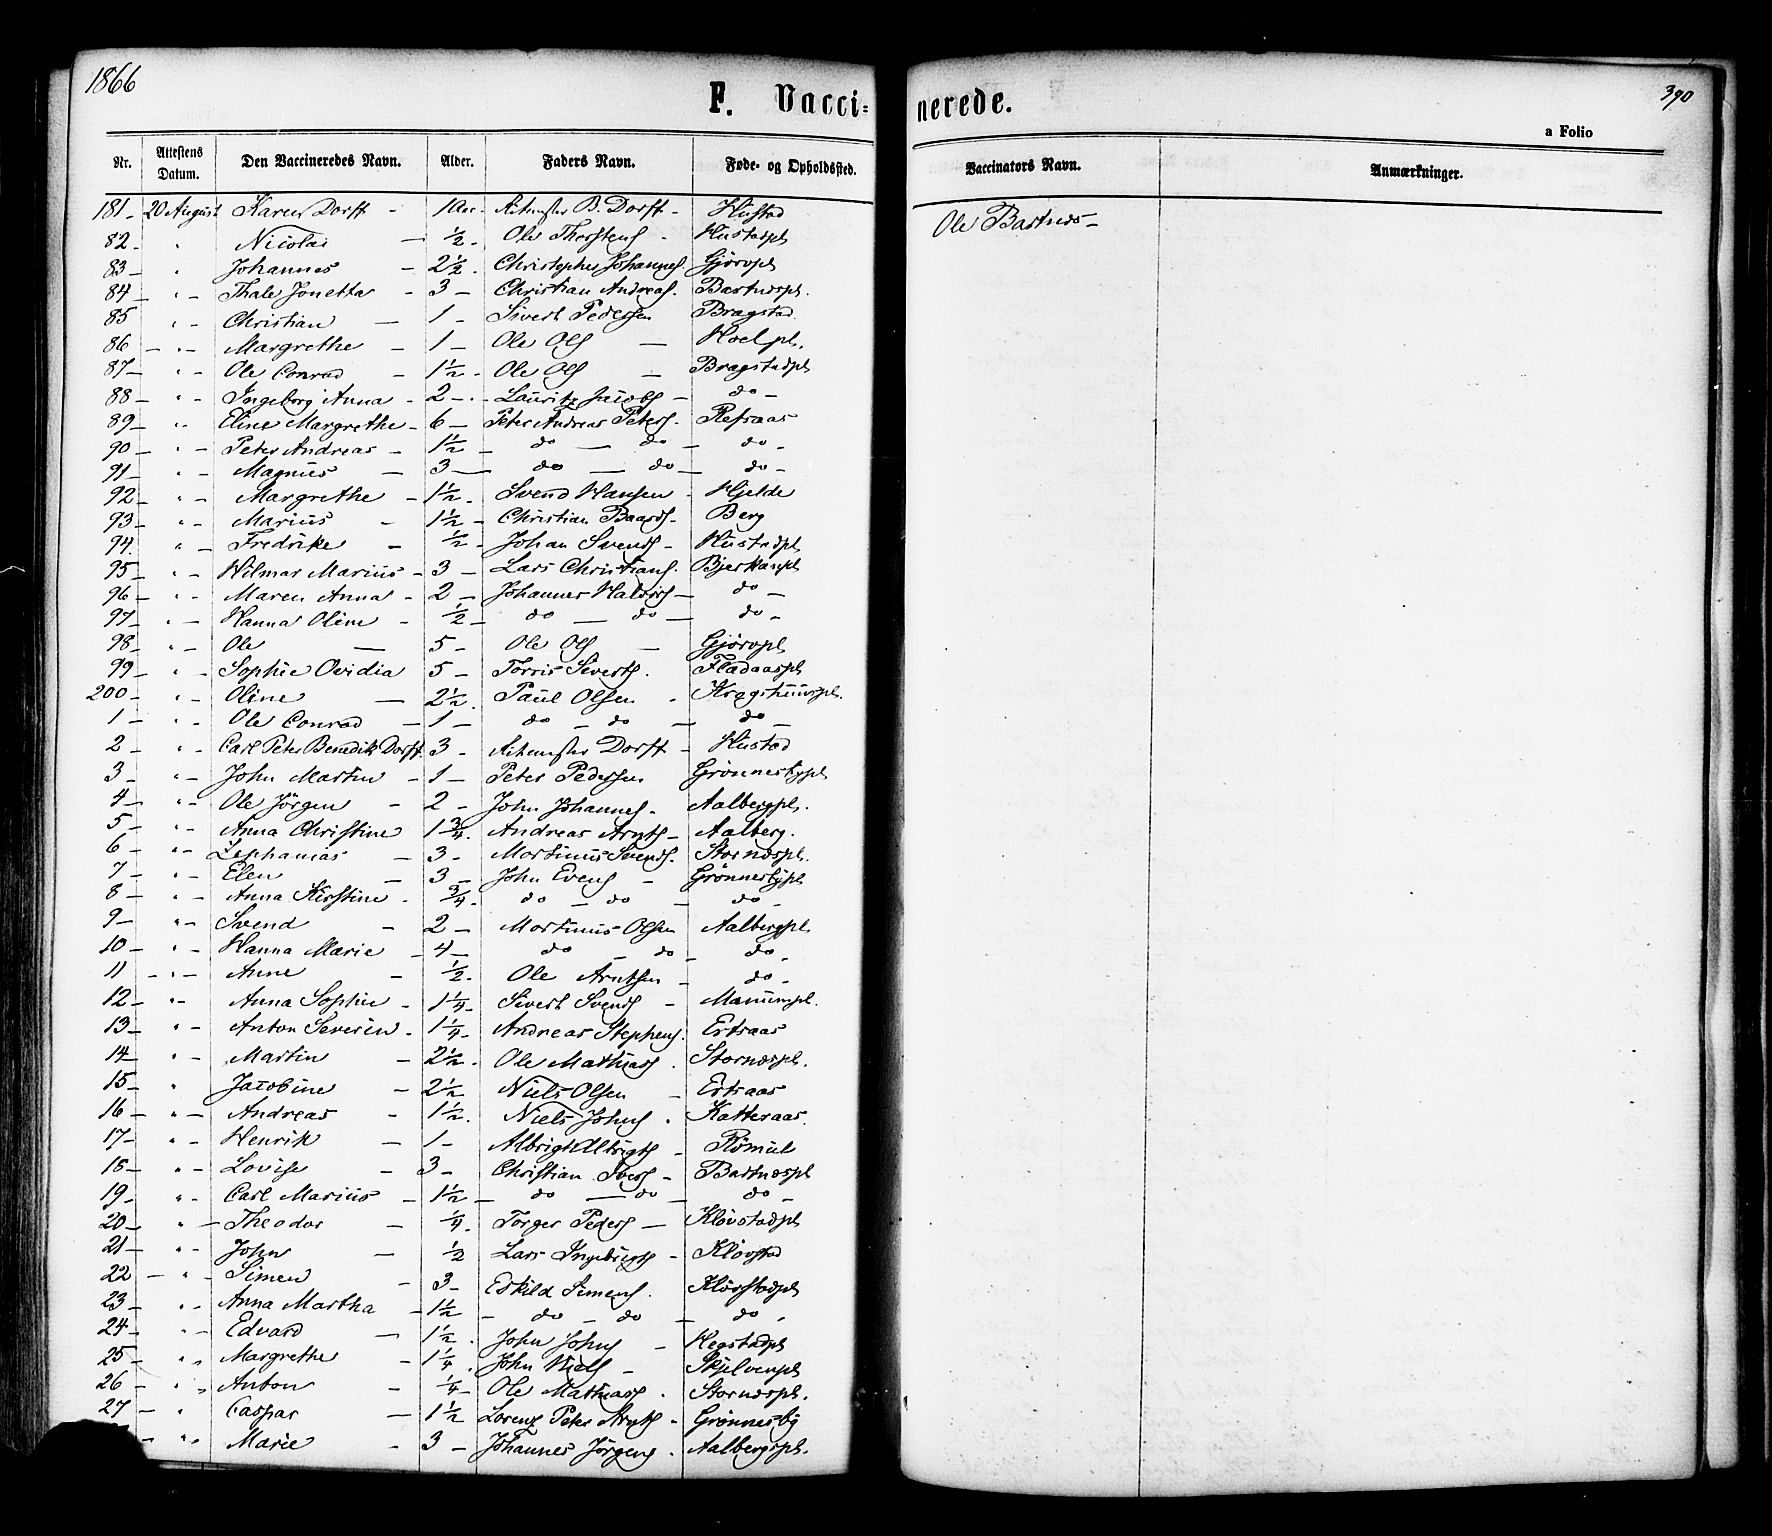 1866
F. Vacci=
nerede.
390
a Folio
Nr. Attestens Datum. Den Vaccineredes Navn. Alder. Faders Navn. Føde- og Opholdssted. Vaccinators Navn. Anmærkninger.
181 - 20 August Karen Dorff - 1 Aar - B. Dorff - Hustad Ole Bartnes -
82 - " Nicolai - ½ - Ole Thorstens - Hustadpl
83 - " Johannes - 2½ - Christopher Johannes. Gjørvpl
84 - " - Thale Jonetta - 3 - Christian Andreas. Bartnespl.
85 " - Christian - 1 - Sivert Pedersen Bragstad.
86 - " - Margrethe - 1 - Ole Ols - Hoelpl.
87 - " - Ole Conrad - 1½ - Ole Ols - Bragstadpl
88 - " - Ingeborg Anna - 2 - Lauritz Jacobs - do -
89 - " Eline Margrethe - 6 - Peter Andreas Peters. Refsaas
90 - " - Peter Andreas - 1½ - do - do - do -
91 - " - Magnus - 3 - do - do - do -
92 - " - Margrethe - 1½ - Svend Hansen - Hjelde
93 - " - Marius - 1½ - Christian Baards - Berg
94. " - Fredrike - ½ - Johan Svends - Hustadpl
95 - " - Hilmar Marius - 3 - Lars Christians. Bjerkanpl
96 - " - Maren Anna - 2 - Johannes Haldors - do -
97 - " - Hanna Oline - ½ - do - do - do -
98 - " - Ole - 5 - Ole Ols - Gjørvpl
99 - " - Sophie Ovidia 5 - Torris Siverts. Fladaaspl
200 - " - Oline - 2½. Paul Olsen - Kragstuunspl.
1 - " - Ole Conrad - 1 - do - do - do -
2 - " - Carl Peter Benedik Dorff. 3 - Dorff - Hustad
3 - " - John Martin - 1 - Peter Pedersen Grønnesbypl
4 - " - Ole Jörgen - 2 - John Johannes - Aalbergpl.
5 - " - Anna Christine 1¾. Andreas Arnts - Aalberg.
6 - " - Zephanias - 3 - Mortinus Svends. Stornæspl.
7 - " - Elen - 3 - John Evens - Grønnesbypl
8 - " - Anna Kirstine - ¾ - do - do - do -
9 - " - Svend - 2 - Mortinus Olsen Aalbergpl
10 - " - Hanna Marie - 4 - do - do - do -
11 - " - Anne - ½ - Ole Arntsen - do -
12 - " - Anna Sophie - 1¼ - Sivert Svends - Manumpl.
13 - " - Anton Severin - 1¼ - Andreas Stephens. Ertsaas
14 - " - Martin - 2½ . Ole Mathias . Stornæspl.
15 - " Jacobine - 2½ Niels Olsen - Ertsaas
16 - " - Andreas - 1½. Niels Johns . Katteraas.
17 - " - Henrik - 1 - Albrigt Albrigts - Römul
18 - " - Lovise - 3 - Christian Ivers - Bartnæspl
19 - " - Carl Marius - 1½ - do - do - do -
20 - " - Theodor - ¼ - Torger Peders - Kløvstadpl
21 - " - John - ½ Lars Ingebrigts - Kløvstad
22 - " - Simen - 3 - Eskild Simens. Kløvstadpl
23 - " - Anna Martha - 1½ - do - do - do -
24 - " - Edvard - 1½ . John Johns - Hegstadpl
25 - " - Margrethe - 1¼ . John Niels - Skjelvenpl
26 - " - Anton - ¼ - Ole Mathias . Stornæspl.
27 - " Caspar - 1½ Lorenz Peter Arnts - Grønnesby
- " - Marie - 3 - Johannes Jörgens . Aalbergspl.